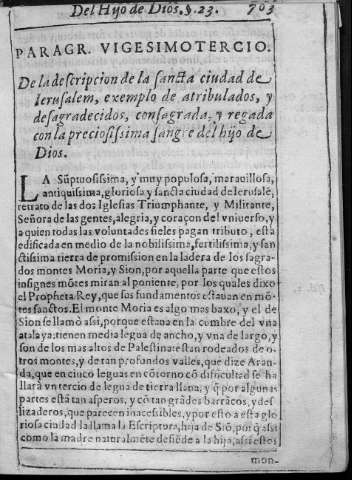 Del Hijo de Dios. §. 23. 703
PARAGR. VIGESIMOTERCIO.
De la descripcion de la sancta ciudad de
Ierusalem, exemplo de atribulados, y
desagradecidos, consagrada, y regada
con la preciosissima sangre del hijo de
Dios.
LA Sũptuosissima, y muy populosa, marauillosa,
antiquissima, gloriosa y sancta ciudad de Ierusalẽ,
retrato de las dos Iglesias Triumphante, y Militante,
Señora de las gentes, alegria, y coraçon del vniuerso, y
a quien todas las voluntades fieles pagan tributo, esta
edificada en medio de la nobilissima, fertilissima, y san
ctissima tierra de promission en la ladera de los sagra-
dos montes Moria, y Sion, por aquella parte que estos
insignes mõtes miran al poniente, por los quales dixo
el Propheta Rey, que sus fundamentos estauan en mõ-
tes sanctos. El monte Moria es algo mas baxo, y el de
Sion se llamò assi, porque estana en la cumbre del vna
atalaya: tienen media legua de ancho, y vna de largo, y
son de los mas altos de Palestina: estan rodeados de o-
tros montes, y de tan profundos valles, que dize Aran-
da, que en cinco leguas en cõtorno cõ dificultad se ha
llarà vn tercio de legua de tierra llana, y q̃ por algunas
partes està tan asperos, y cõ tan grãdes barrãcos, y des-
lizaderos, que parecen inacesibles, y por esto a esta glo
riosa ciudad la llama la Escriptura, hija de Siõ, por q̃ assi
como la madre naturalmẽte defiẽde a la hija, assi estos
mon-